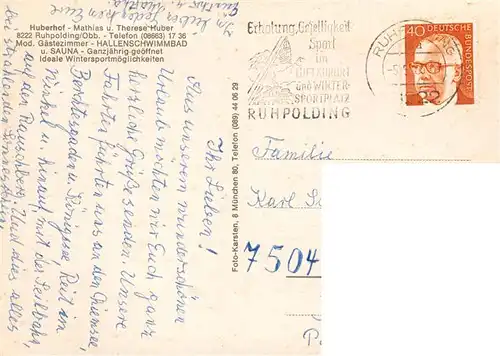 Huberhof - Mathias u. Therese Huber
8222 Ruhpolding/Obb. - Telefon (08663) 17 36
Mod. Gästezimmer - HALLENSCHWIMMBAD
u. SAUNA - Ganzjährig geöffnet
Ideale Wintersportmöglichkeiten
Ihr Lieben!
Aus unserem wunderschönen
Urlaub möchten wir Euch ganz
herzliche Grüße senden. Unsere
Fahrten führten uns an den Chiemsee
Berchtesgaden u. Königssee, Reit im
Winkel u. hinauf mit der Seilbahn
auf den Rauschberg. Und dies alles
bei strahlendem Sonnenschein.
Foto-Karsten, 8 München 80, Telefon (089) 44 06 29
Erholung, Geselligkeit
Sport
im
LUFTKURORT
UND WINTER-
SPORTPLATZ
RUHPOLDING
40
DEUTSCHE
BUNDESPOST
Familie
Karl
7504